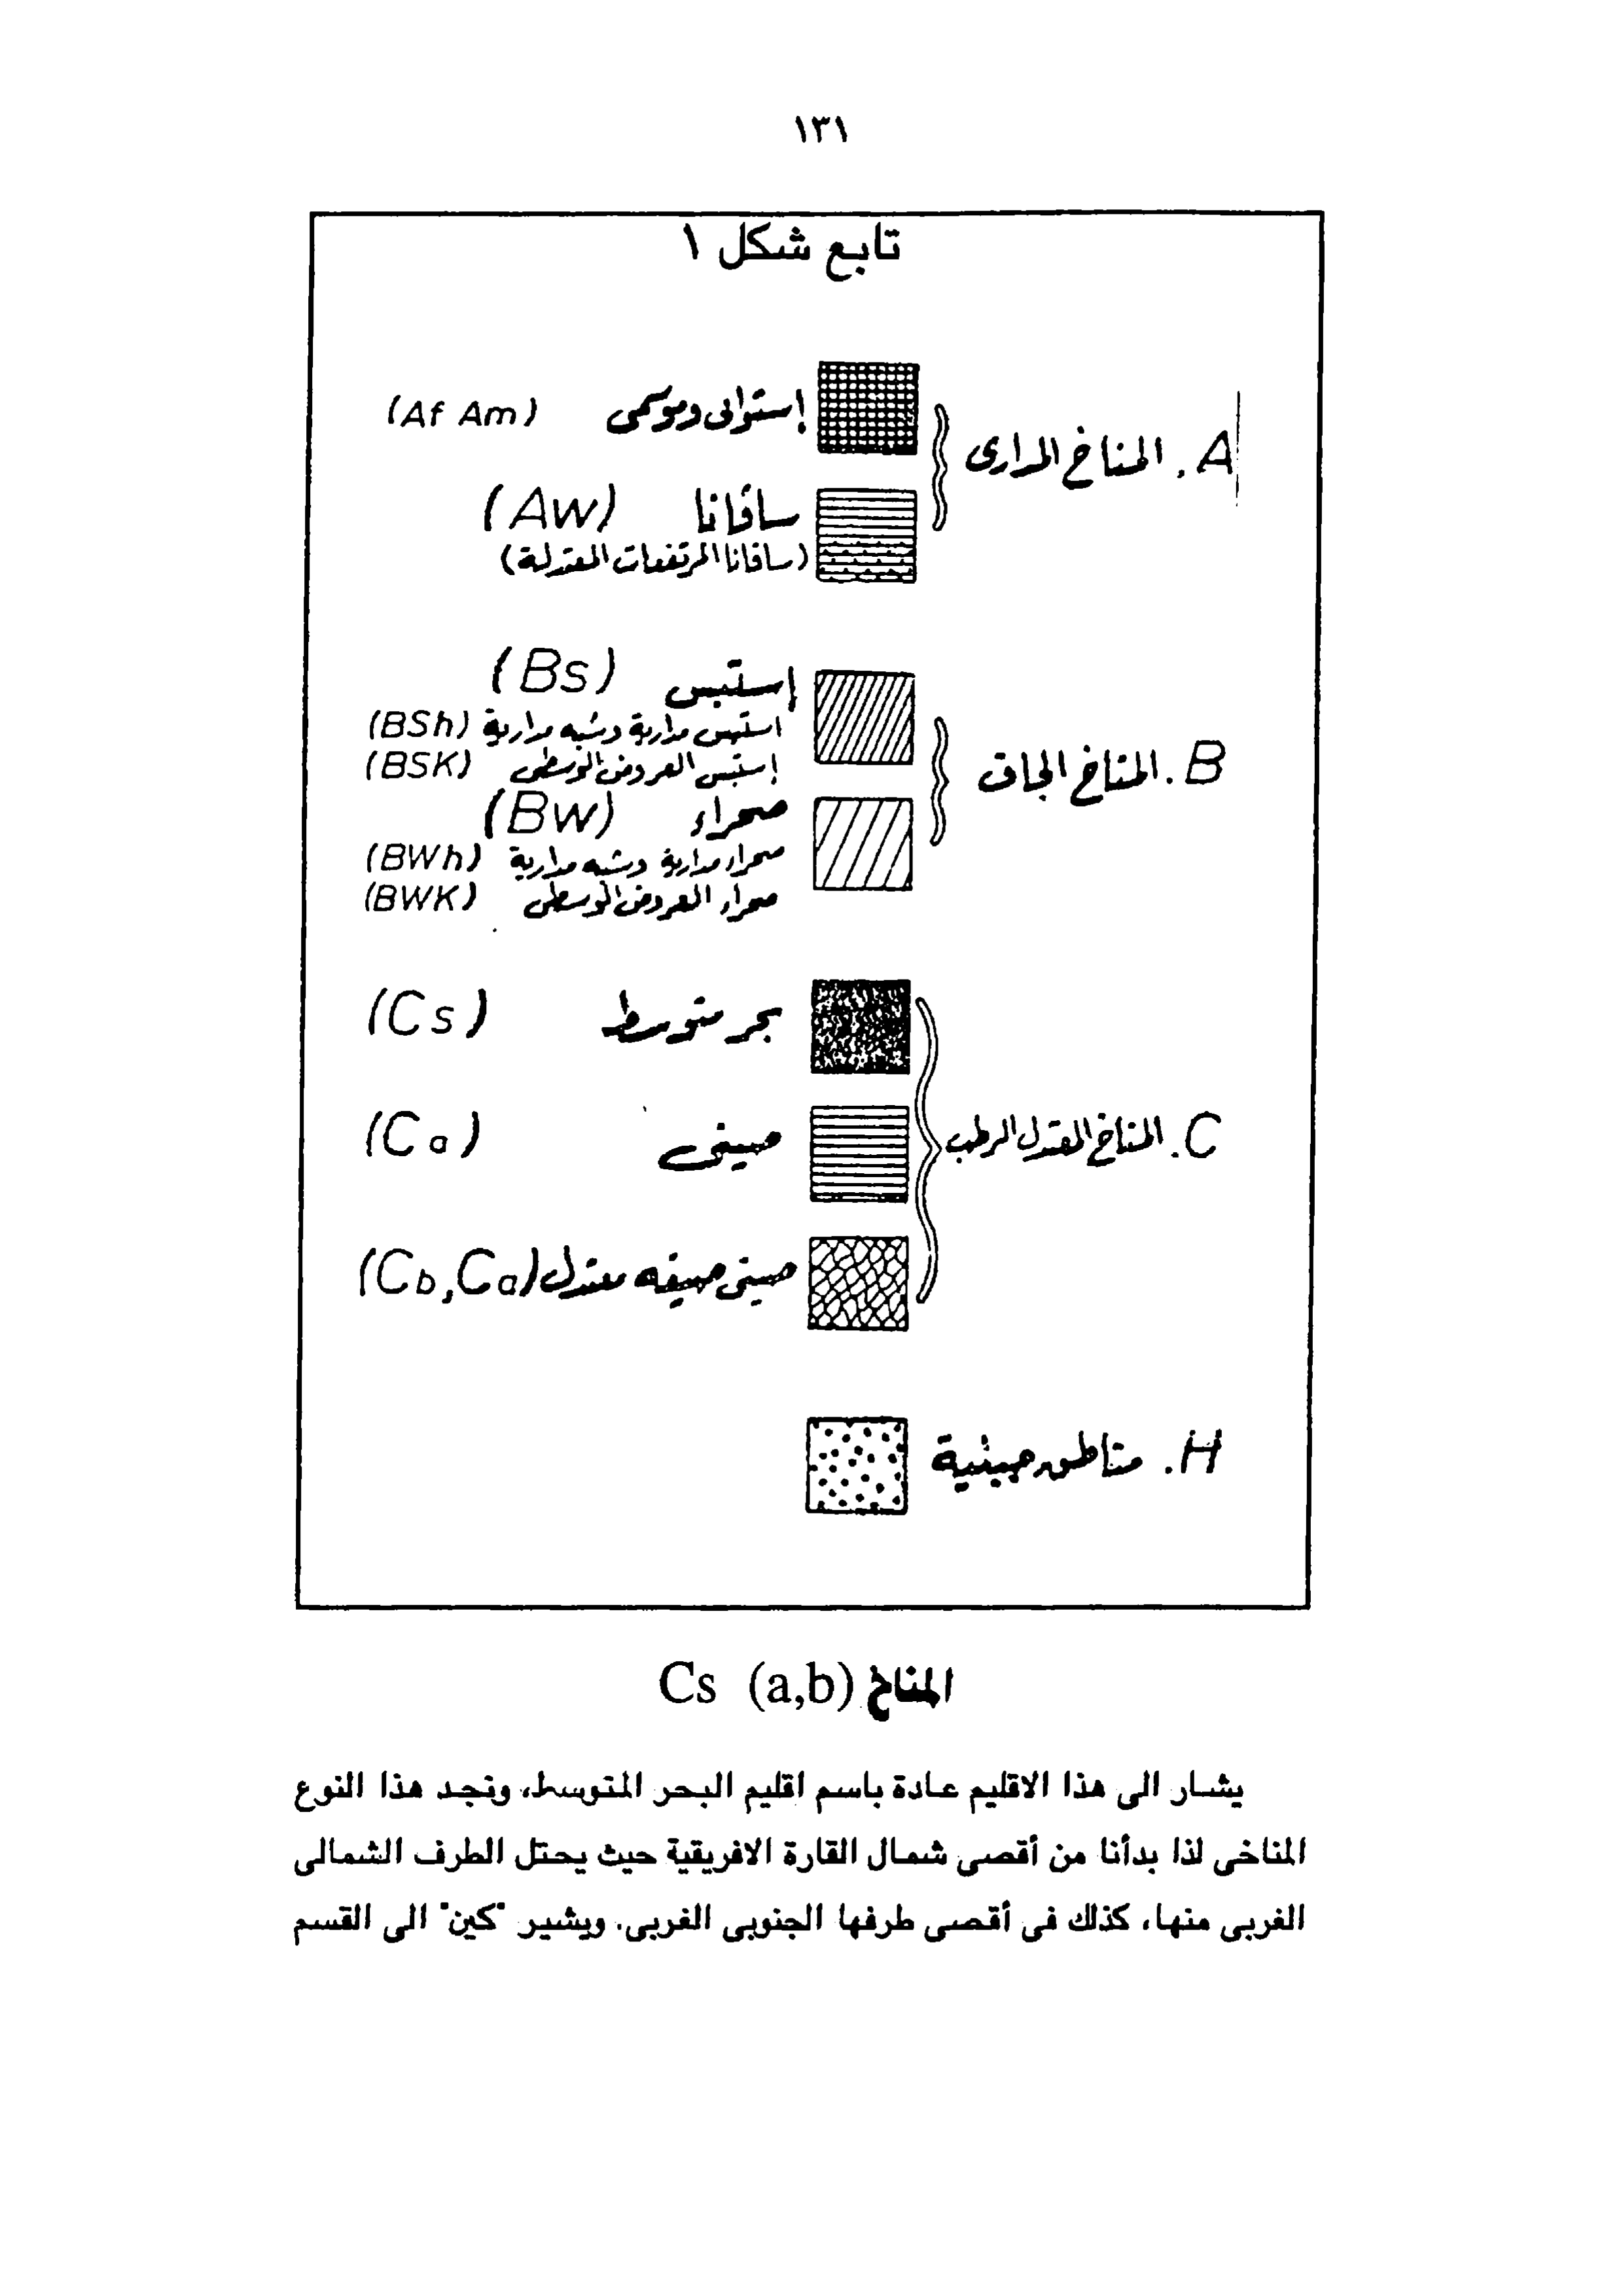 ١٣١
تابع شكل ١
A. المناخ المدارى
إستوائى وموسمى (Af Am)
ساڤانا (Aw)
(ساڤانا المرتفعات المعتدلة)
B. المناخ الجاف
إستبس (Bs)
استبس مدارية وشبه مدارية (BSh)
إستبس العروض الوسطى (BSK)
صحراء (Bw)
صحراء مدارية وشبه مدارية (BWh)
صحراء العروض الوسطى (BWK)
C. المناخ المعتدل الرطب
بحر متوسط (Cs)
صينى (Ca)
صينى صيفه معتدل (Cb,Ca)
H. مناطق جبلية
المناخ Cs (a,b)
يشار الى هذا الاقليم عادة باسم اقليم البحر المتوسط، ونجد هذا النوع
المناخى لذا بدأنا من أقصى شمال القارة الافريقية حيث يحتل الطرف الشمالى
الغربى منها، كذلك فى أقصى طرفها الجنوبى الغربى. ويشير "كين" الى القسم